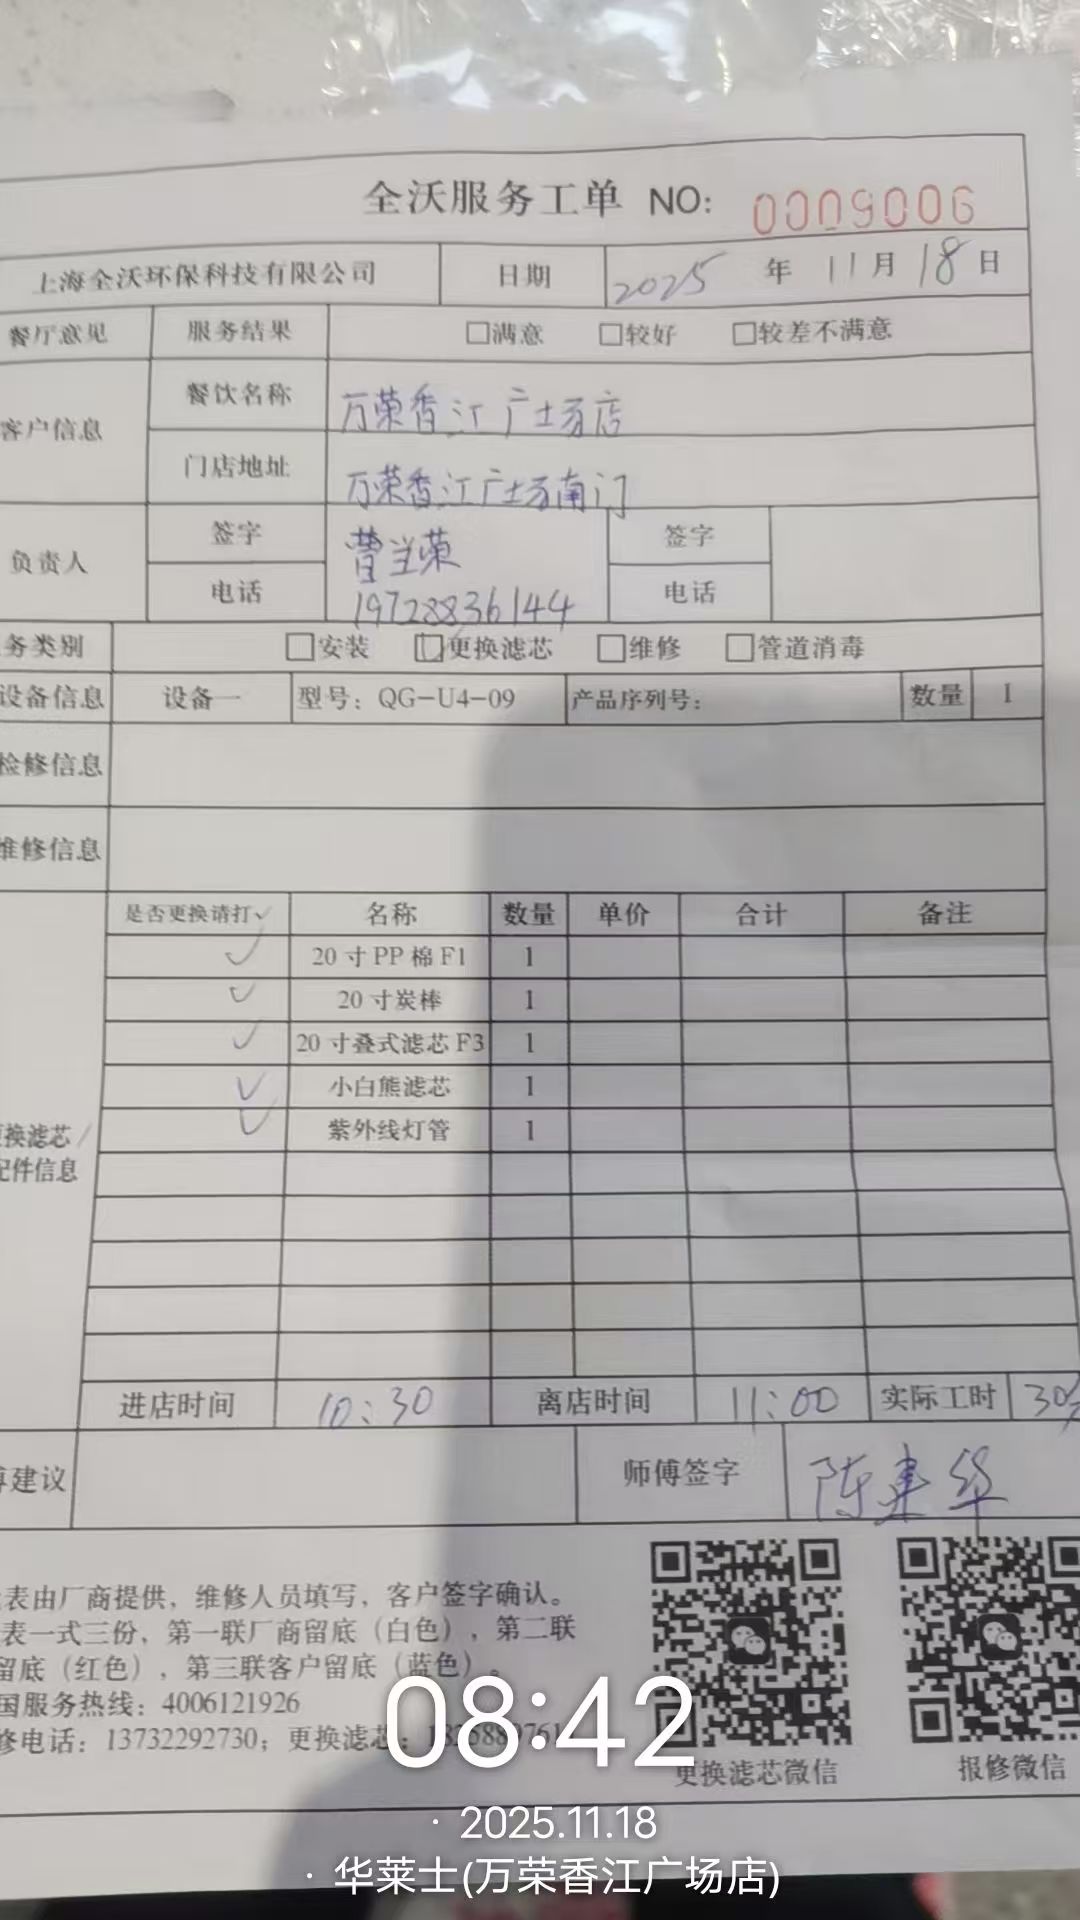 全沃服务工单 NO: 0009006
上海全沃环保科技有限公司 日期 2025 年 11 月 18 日
餐厅意见 服务结果 □满意 □较好 □较差不满意
客户信息 餐饮名称 万荣香江广场店
门店地址 万荣香江广场南门
负责人 签字 签字
电话 19728836144 电话
务类别 □安装 □更换滤芯 □维修 □管道消毒
设备信息 设备一 型号：QG-U4-09 产品序列号： 数量 1
检修信息
维修信息
是否更换请打✓ 名称 数量 单价 合计 备注
✓ 20 寸 PP 棉 F1 1
✓ 20 寸炭棒 1
✓ 20 寸叠式滤芯 F3 1
✓ 小白熊滤芯 1
✓ 紫外线灯管 1
换滤芯/
配件信息
进店时间 10:30 离店时间 11:00 实际工时 30
建议 师傅签字 陈建华
表由厂商提供，维修人员填写，客户签字确认。
表一式三份，第一联厂商留底（白色），第二联
留底（红色），第三联客户留底（蓝色）。
国服务热线：4006121926
修电话：13732292730；更换滤芯：
更换滤芯微信 报修微信
08:42
· 2025.11.18
· 华莱士(万荣香江广场店)